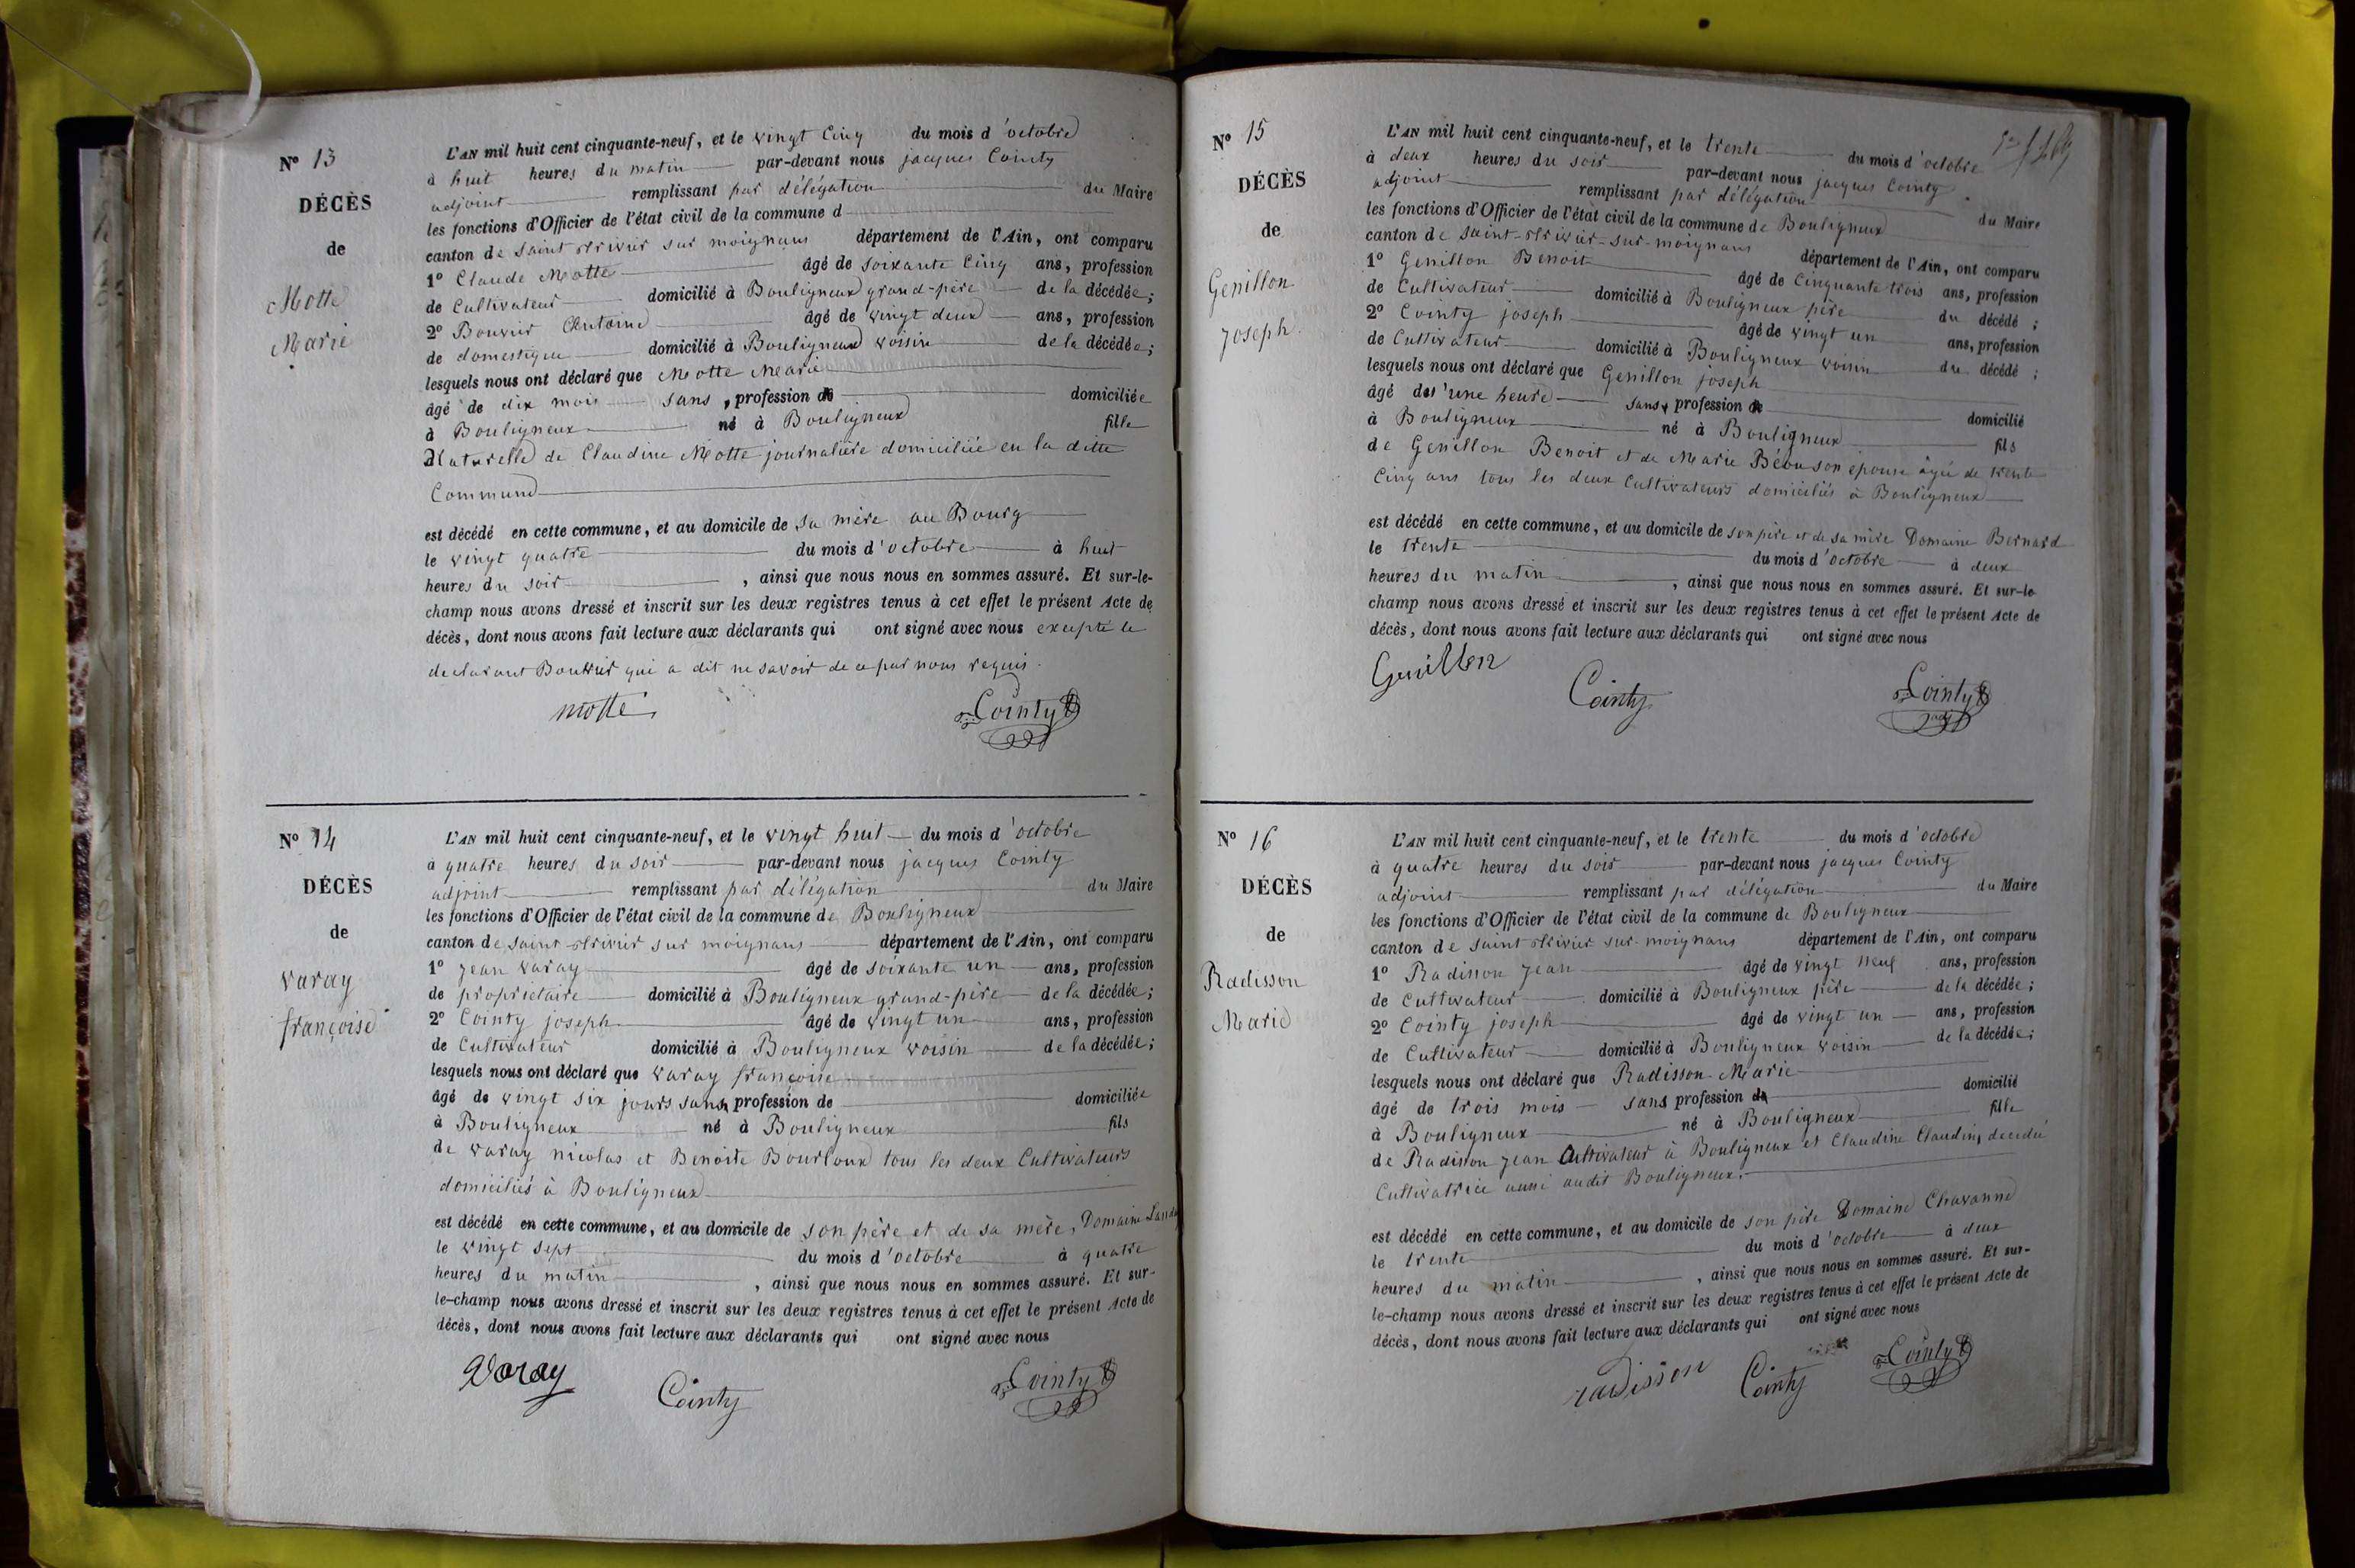 N° 13
DÉCÈS
de
Motte
Marie
L'AN mil huit cent cinquante-neuf, et le vingt Cinq du mois d'octobre
à huit heures du matin par-devant nous jacques Cointy
adjoint remplissant par délégation du Maire
les fonctions d'Officier de l'état civil de la commune d
canton de Saint trivier sur moignans département de l'Ain, ont comparu
1° Claude Motte âgé de soixante Cinq ans, profession
de Cultivateur domicilié à Bouligneux grand-père de la décédée;
2° Bouvier Antoine âgé de vingt deux ans, profession
de domestique domicilié à Bouligneux voisin de la décédée;
lesquels nous ont déclaré que Motte Marie
âgé de dix mois sans, profession de domiciliée
à Bouligneux né à Bouligneux fille
Naturelle de Claudine Motte journalière domiciliée en la ditte
Commune
est décédé en cette commune, et au domicile de sa mère au Bourg
le vingt quatre du mois d'octobre à huit
heures du soir, ainsi que nous nous en sommes assuré. Et sur-le-
champ nous avons dressé et inscrit sur les deux registres tenus à cet effet le présent Acte de
décès, dont nous avons fait lecture aux déclarants qui ont signé avec nous excepté le
declarant Bouvier qui a dit ne savoir de ce par nous requis.
motte Cointy
N° 14
DÉCÈS
de
varay
françoise
L'AN mil huit cent cinquante-neuf, et le vingt huit du mois d'octobre
à quatre heures du soir par-devant nous jacques Cointy
adjoint remplissant par délégation du Maire
les fonctions d'Officier de l'état civil de la commune de Bouligneux
canton de saint trivier sur moignans département de l'Ain, ont comparu
1° jean varay âgé de soixante un ans, profession
de propriétaire domicilié à Bouligneux grand-père de la décédée;
2° Cointy joseph âgé de vingt un ans, profession
de Cultivateur domicilié à Bouligneux voisin de la décédée;
lesquels nous ont déclaré que varay françoise
âgé de vingt six jours sans profession de domiciliée
à Bouligneux né à Bouligneux fils
de varay nicolas et Benoite Bourloux tous les deux Cultivateurs
domiciliés à Bouligneux
est décédé en cette commune, et au domicile de son père et de sa mère, Domaine
le vingt sept du mois d'octobre à quatre
heures du matin, ainsi que nous nous en sommes assuré. Et sur-
le-champ nous avons dressé et inscrit sur les deux registres tenus à cet effet le présent Acte de
décès, dont nous avons fait lecture aux déclarants qui ont signé avec nous
Varay Cointy Cointy
N° 15
DÉCÈS
de
Genillon
joseph.
L'AN mil huit cent cinquante-neuf, et le trente du mois d'octobre
à deux heures du soir par-devant nous jacques Cointy
adjoint remplissant par délégation du Maire
les fonctions d'Officier de l'état civil de la commune de Bouligneux
canton de saint-trivier-sur-moignans département de l'Ain, ont comparu
1° Genillon Benoit âgé de Cinquante trois ans, profession
de Cultivateur domicilié à Bouligneux père du décédé;
2° Cointy joseph âgé de vingt un ans, profession
de Cultivateur domicilié à Bouligneux voisin du décédé;
lesquels nous ont déclaré que Genillon joseph
âgé de d'une heure sans profession de domicilié
à Bouligneux né à Bouligneux fils
de Genillon Benoit et de Marie son épouse âgée de trente
Cinq ans tous les deux Cultivateurs domiciliés à Bouligneux
est décédé en cette commune, et au domicile de son père et de sa mère Domaine Bernard
le trente du mois d'octobre à deux
heures du matin, ainsi que nous nous en sommes assuré. Et sur-le-
champ nous avons dressé et inscrit sur les deux registres tenus à cet effet le présent Acte de
décès, dont nous avons fait lecture aux déclarants qui ont signé avec nous
Genillon Cointy Cointy
N° 16
DÉCÈS
de
Radisson
Marie
L'AN mil huit cent cinquante-neuf, et le trente du mois d'octobre
à quatre heures du soir par-devant nous jacques Cointy
adjoint remplissant par délégation du Maire
les fonctions d'Officier de l'état civil de la commune de Bouligneux
canton de saint trivier sur-moignans département de l'Ain, ont comparu
1° Radisson jean âgé de vingt neuf ans, profession
de Cultivateur domicilié à Bouligneux père de la décédée;
2° Cointy joseph âgé de vingt un ans, profession
de Cultivateur domicilié à Bouligneux voisin de la décédée;
lesquels nous ont déclaré que Radisson Marie
âgé de trois mois sans profession de domicilié
à Bouligneux né à Bouligneux fille
de Radisson jean Cultivateur à Bouligneux et Claudine Claudin, decedée
Cultivatrice aussi audit Bouligneux.
est décédé en cette commune, et au domicile de son père Domaine Chavanne
le trente du mois d'octobre à deux
heures du matin, ainsi que nous nous en sommes assuré. Et sur-
le-champ nous avons dressé et inscrit sur les deux registres tenus à cet effet le présent Acte de
décès, dont nous avons fait lecture aux déclarants qui ont signé avec nous
radisson Cointy Cointy